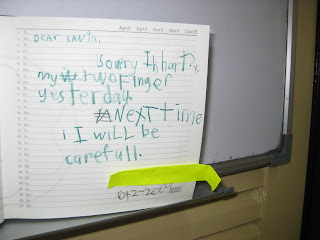 April April April April April
DEAR SANTA,
Sowry I hart
my two Finger
yesterday.
NEXT time
i I WILL be
carefull.